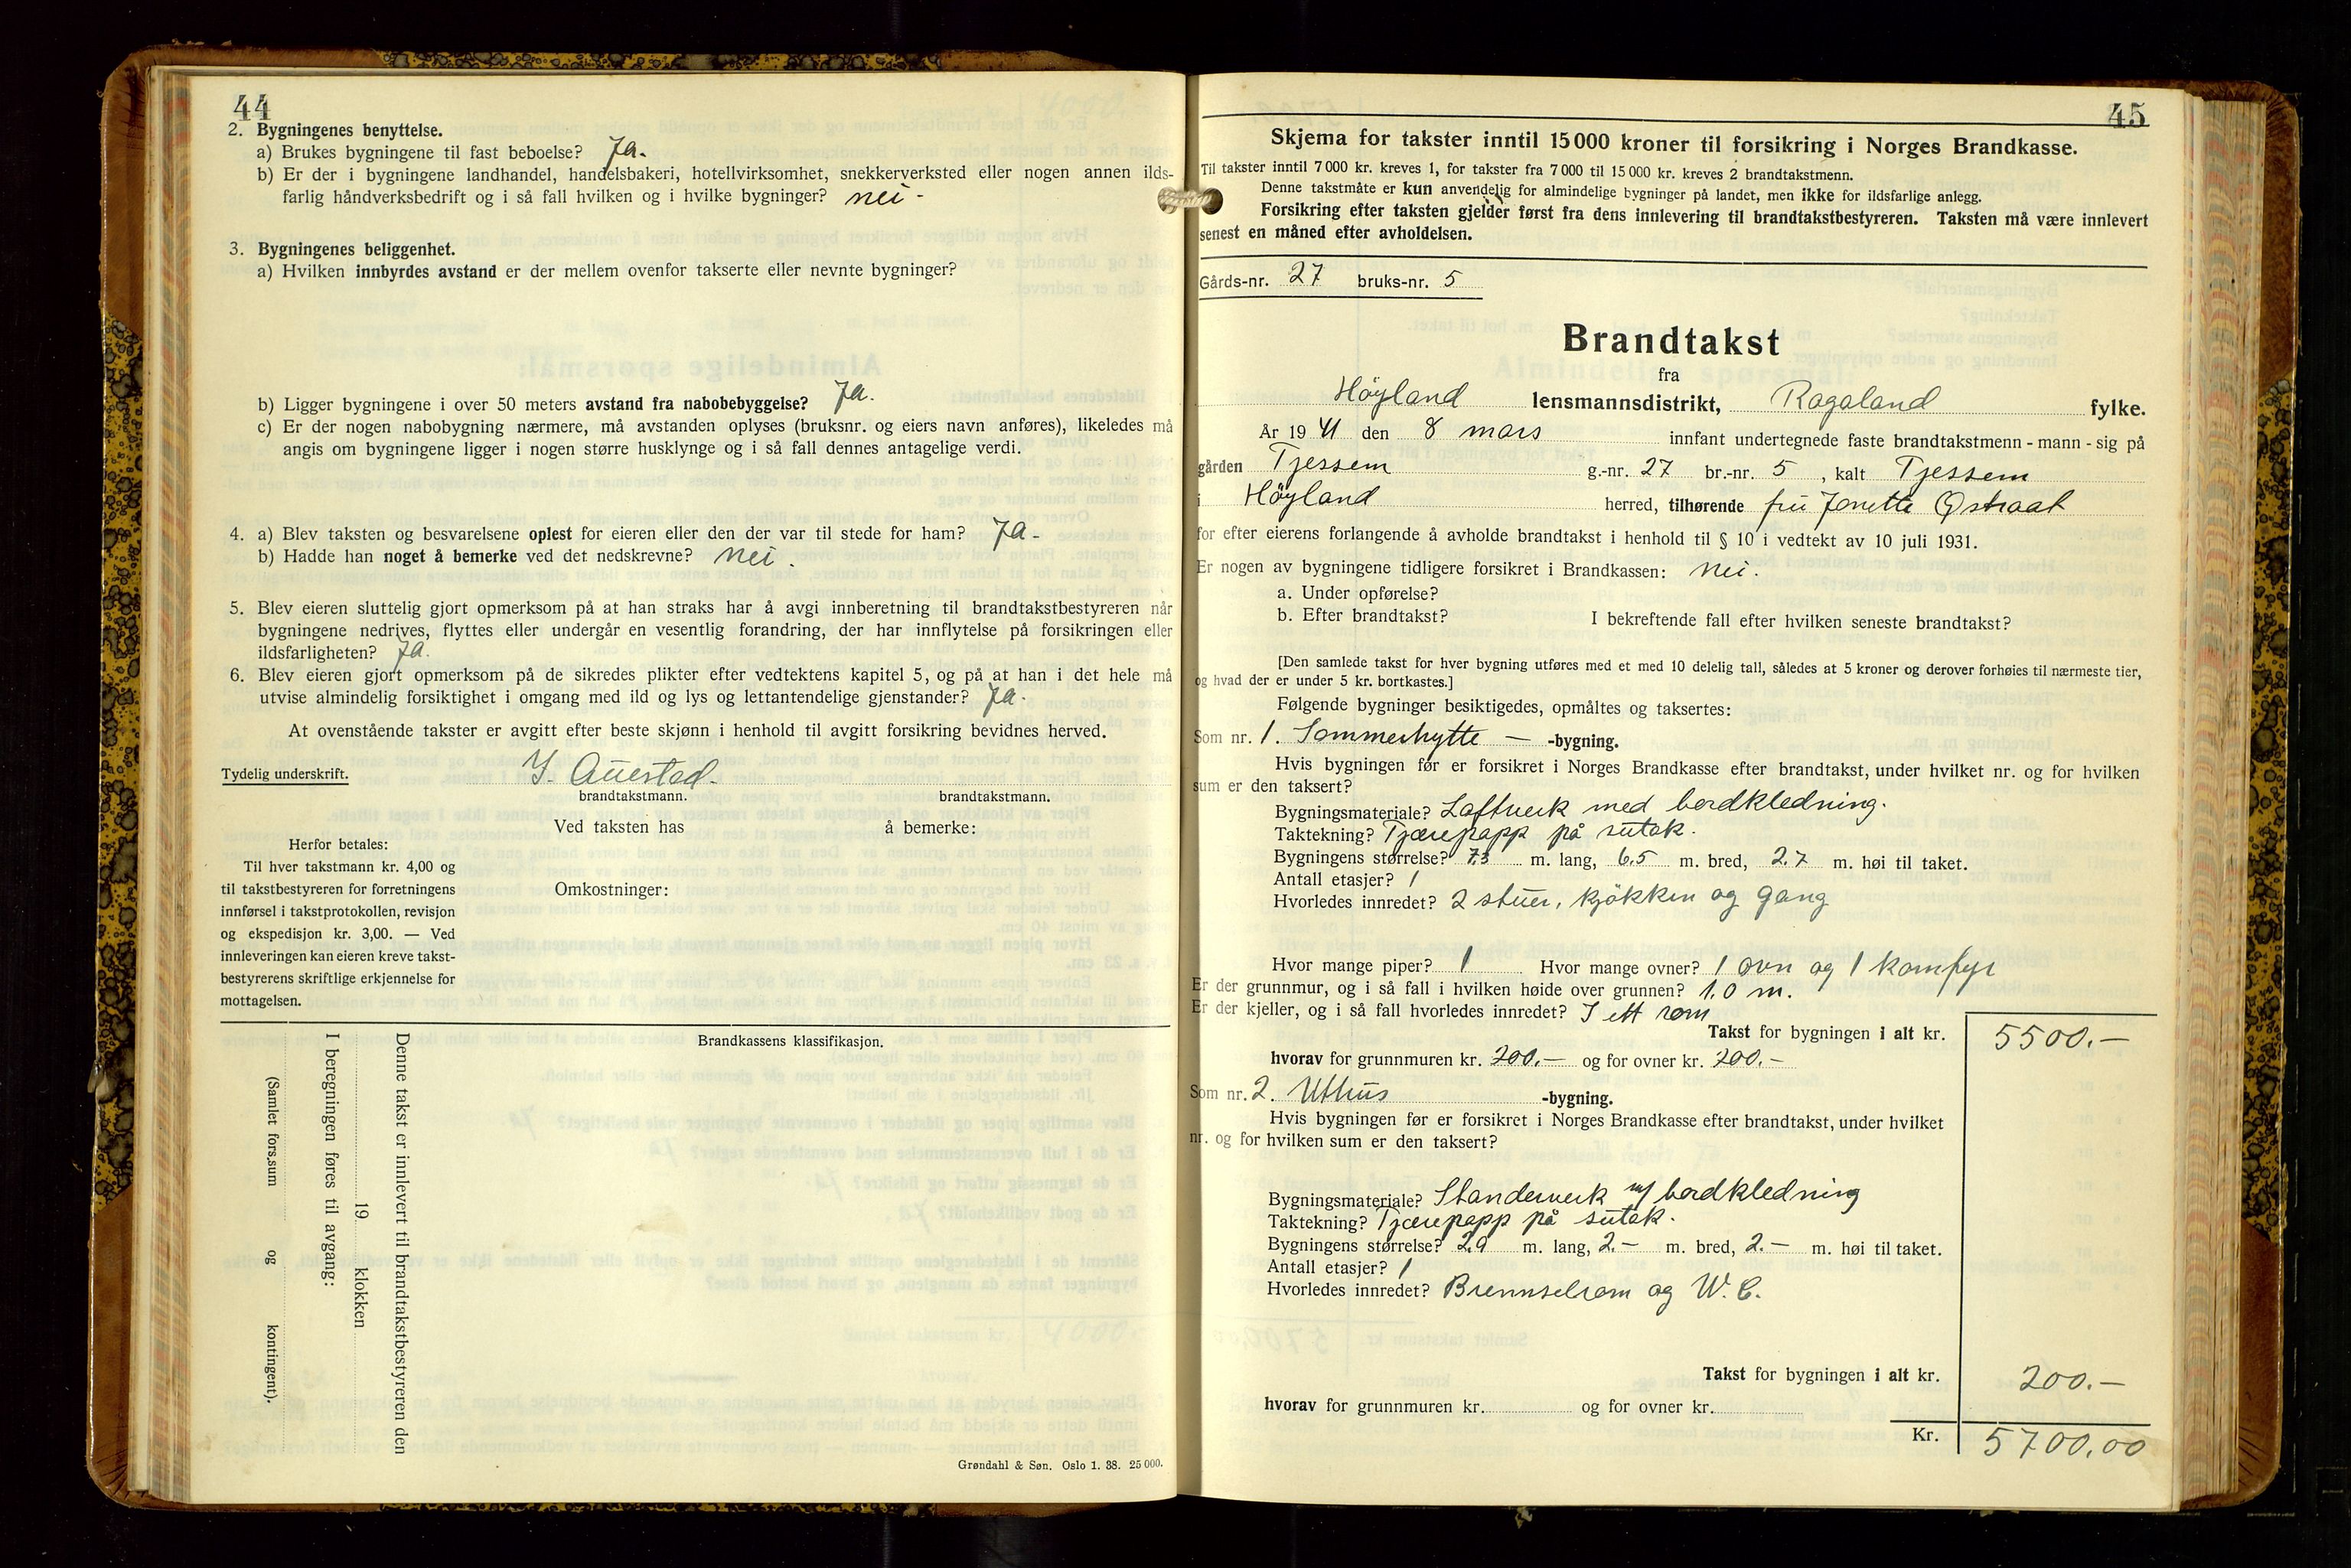 44
2. Bygningenes benyttelse.
a) Brukes bygningene til fast beboelse? Ja.
b) Er der i bygningene landhandel, handelsbakeri, hotellvirksomhet, snekkerverksted eller nogen annen ilds-
farlig håndverksbedrift og i så fall hvilken og i hvilke bygninger? nei -
3. Bygningenes beliggenhet.
a) Hvilken innbyrdes avstand er der mellem ovenfor takserte eller nevnte bygninger?
b) Ligger bygningene i over 50 meters avstand fra nabobebyggelse? Ja.
c) Er der nogen nabobygning nærmere, må avstanden oplyses (bruksnr. og eiers navn anføres), likeledes må
angis om bygningene ligger i nogen større husklynge og i så fall dennes antagelige verdi.
4. a) Blev taksten og besvarelsene oplest for eieren eller den der var til stede for ham? Ja -
b) Hadde han noget å bemerke ved det nedskrevne? nei.
5. Blev eieren sluttelig gjort opmerksom på at han straks har å avgi innberetning til brandtakstbestyreren når
bygningene nedrives, flyttes eller undergår en vesentlig forandring, der har innflytelse på forsikringen eller
ildsfarligheten? Ja.
6. Blev eieren gjort opmerksom på de sikredes plikter efter vedtektens kapitel 5, og på at han i det hele må
utvise almindelig forsiktighet i omgang med ild og lys og lettantendelige gjenstander? Ja.
At ovenstående takster er avgitt efter beste skjønn i henhold til avgitt forsikring bevidnes herved.
Tydelig underskrift. Y. Auestad.
brandtakstmann. brandtakstmann.
Ved taksten has å bemerke:
Herfor betales:
Til hver takstmann kr. 4,00 og
til takstbestyreren for forretningens
innførsel i takstprotokollen, revisjon
og ekspedisjon kr. 3,00. — Ved
innleveringen kan eieren kreve takst-
bestyrerens skriftlige erkjennelse for
mottagelsen.
Omkostninger:
Brandkassens klassifikasjon.
Denne takst er innlevert til brandtakstbestyreren den
19 klokken
I beregningen føres til avgang:
(Samlet fors.sum og kontingent).
Grøndahl & Søn. Oslo 1. 38. 25 000.
45
Skjema for takster inntil 15 000 kroner til forsikring i Norges Brandkasse.
Til takster inntil 7 000 kr. kreves 1, for takster fra 7 000 til 15 000 kr. kreves 2 brandtakstmenn.
Denne takstmåte er kun anvendelig for almindelige bygninger på landet, men ikke for ildsfarlige anlegg.
Forsikring efter taksten gjelder først fra dens innlevering til brandtakstbestyreren. Taksten må være innlevert
senest en måned efter avholdelsen.
Gårds-nr. 27 bruks-nr. 5
Brandtakst
fra
Høyland lensmannsdistrikt, Rogaland fylke.
År 19 41 den 8 mars innfant undertegnede faste brandtakstmenn - mann - sig på
gården Tjessem g.-nr. 27 br.-nr. 5, kalt Tjessem
i Høyland herred, tilhørende fru Jonette Østraat
for efter eierens forlangende å avholde brandtakst i henhold til § 10 i vedtekt av 10 juli 1931.
Er nogen av bygningene tidligere forsikret i Brandkassen: nei.
a. Under opførelse?
b. Efter brandtakst? I bekreftende fall efter hvilken seneste brandtakst?
[Den samlede takst for hver bygning utføres med et med 10 delelig tall, således at 5 kroner og derover forhøies til nærmeste tier,
og hvad der er under 5 kr. bortkastes.]
Følgende bygninger besiktigedes, opmåltes og taksertes:
Som nr. 1. Sommerhytte — -bygning.
Hvis bygningen før er forsikret i Norges Brandkasse efter brandtakst, under hvilket nr. og for hvilken
sum er den taksert?
Bygningsmateriale? Laftverk med bordkledning.
Taktekning? Tjærepapp på sutak.
Bygningens størrelse? 7.3 m. lang, 6.5 m. bred, 2.7 m. høi til taket.
Antall etasjer? 1
Hvorledes innredet? 2 stuer, kjøkken og gang
Hvor mange piper? 1 Hvor mange ovner? 1 ovn og 1 komfyr
Er der grunnmur, og i så fall i hvilken høide over grunnen? 1.0 m.
Er der kjeller, og i så fall hvorledes innredet? I ett rom
Takst for bygningen i alt kr. 5500.—
hvorav for grunnmuren kr. 200.— og for ovner kr. 200.—
Som nr. 2. Uthus -bygning.
Hvis bygningen før er forsikret i Norges Brandkasse efter brandtakst, under hvilket
nr. og for hvilken sum er den taksert?
Bygningsmateriale? Standerverk m/ bordkledning
Taktekning? Tjærepapp på sutak.
Bygningens størrelse? 2.9 m. lang, 2.— m. bred, 2.— m. høi til taket.
Antall etasjer? 1
Hvorledes innredet? Brennselrom og W. C.
Takst for bygningen i alt kr. 200.—
hvorav for grunnmuren kr. og for ovner kr.
Kr. 5700,00